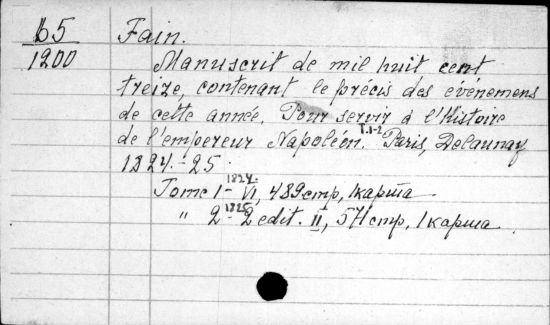 Б5
1200
Fain.
Manuscrit de mil huit cent
treize, contenant le précis des événemens
de cette année. Pour servir à l'Histoire
de l'empereur Napoléon. T.1-2 Paris, Delaunay
1824.-25.
Tome 1- 1824. VI, 489 стр, 1 карта
" 2- 1825 2 edit. II, 571 стр, 1 карта